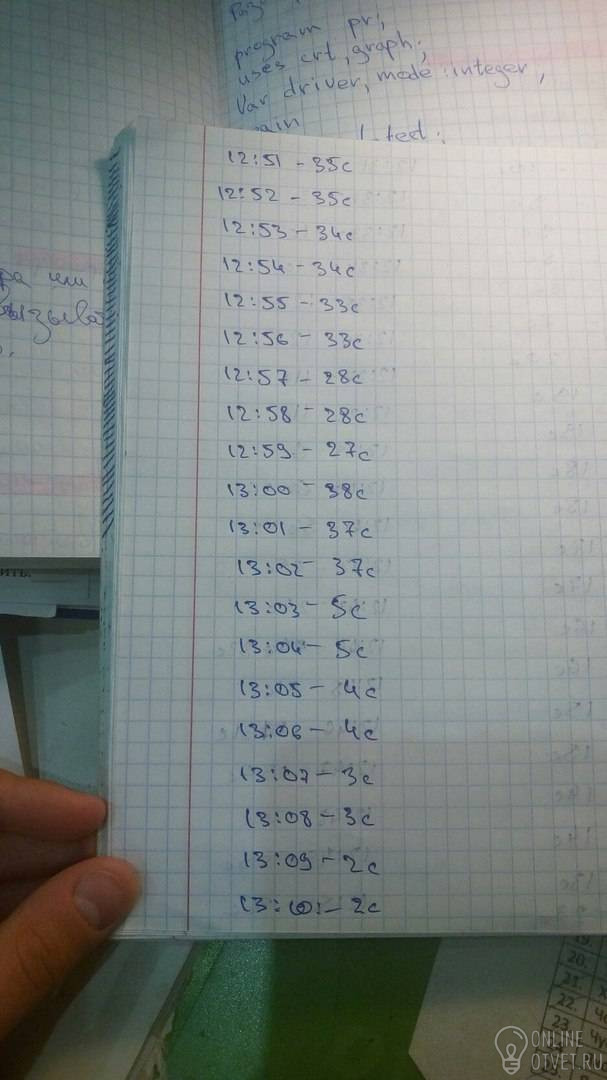 program pri;
uses crt, graph;
Var driver, mode: integer,
12:51 - 35c
12:52 - 35c
12:53 - 34c
12:54 - 34c
ра или
12:55 - 33c
12:56 - 33c
12:57 - 28c
12:58 - 28c
12:59 - 27c
13:00 - 38c
13:01 - 37c
13:02 - 37c
ить.
13:03 - 5c
13:04 - 5c
13:05 - 4c
13:06 - 4c
13:07 - 3c
13:08 - 3c
13:09 - 2c
13:10 - 2c
19.
20.
21.
22.
23.
ONLINE
OTVET.RU